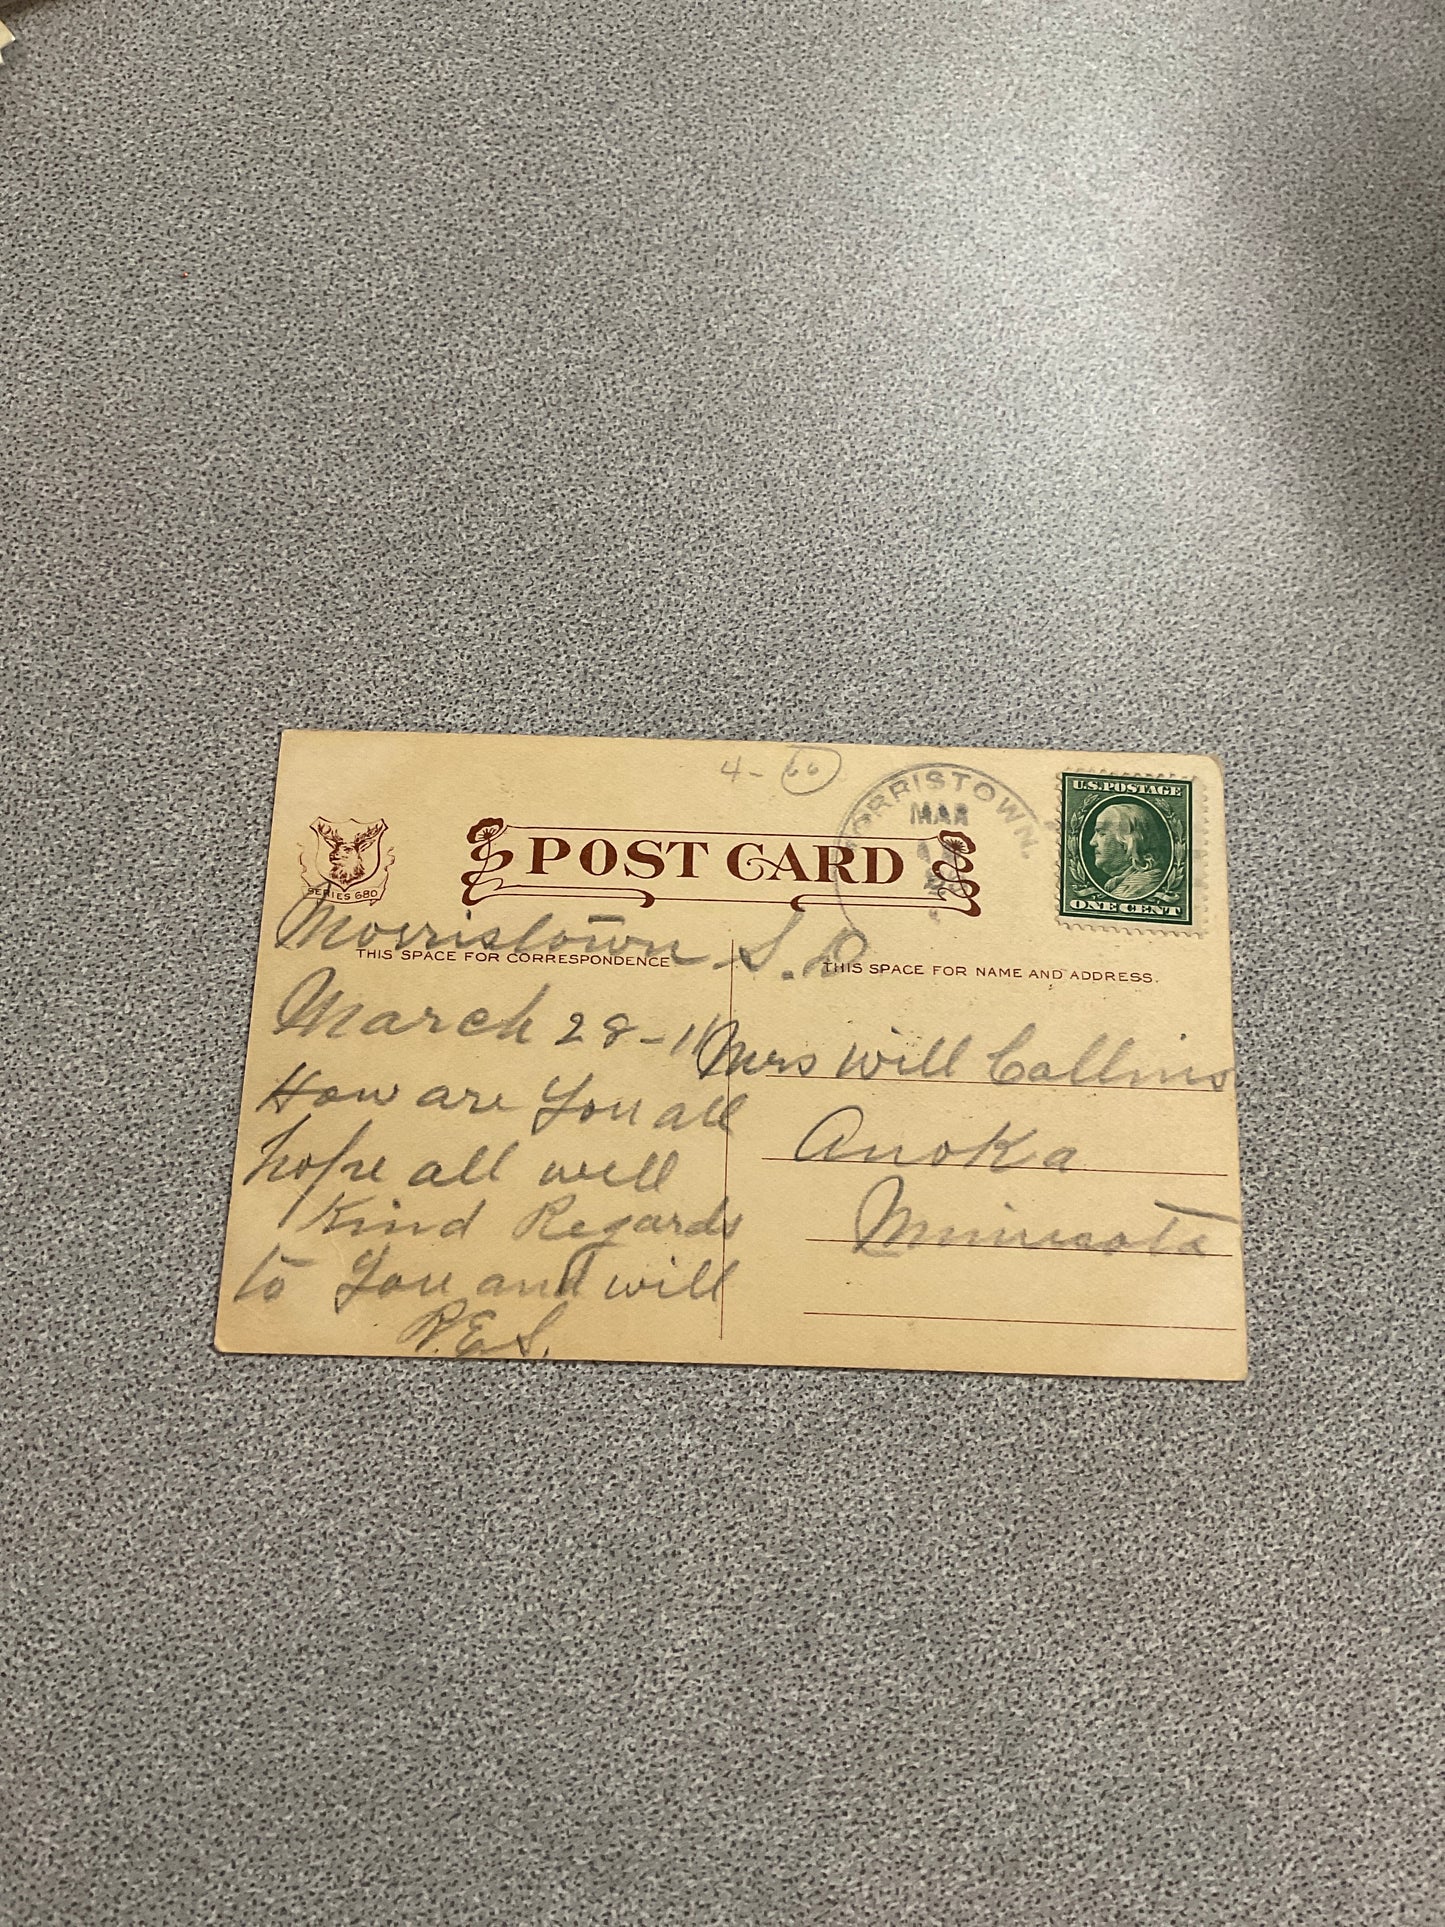 4-66
MORRISTOWN.
MAR
U.S. POSTAGE
ONE CENT
SERIES 680
POST CARD
Morristown S. D
THIS SPACE FOR CORRESPONDENCE
THIS SPACE FOR NAME AND ADDRESS.
March 28-11
How are You all
hope all well
Kind Regards
to You and will
R.E.S.
Mrs Will Collins
Anoka
Minnesota